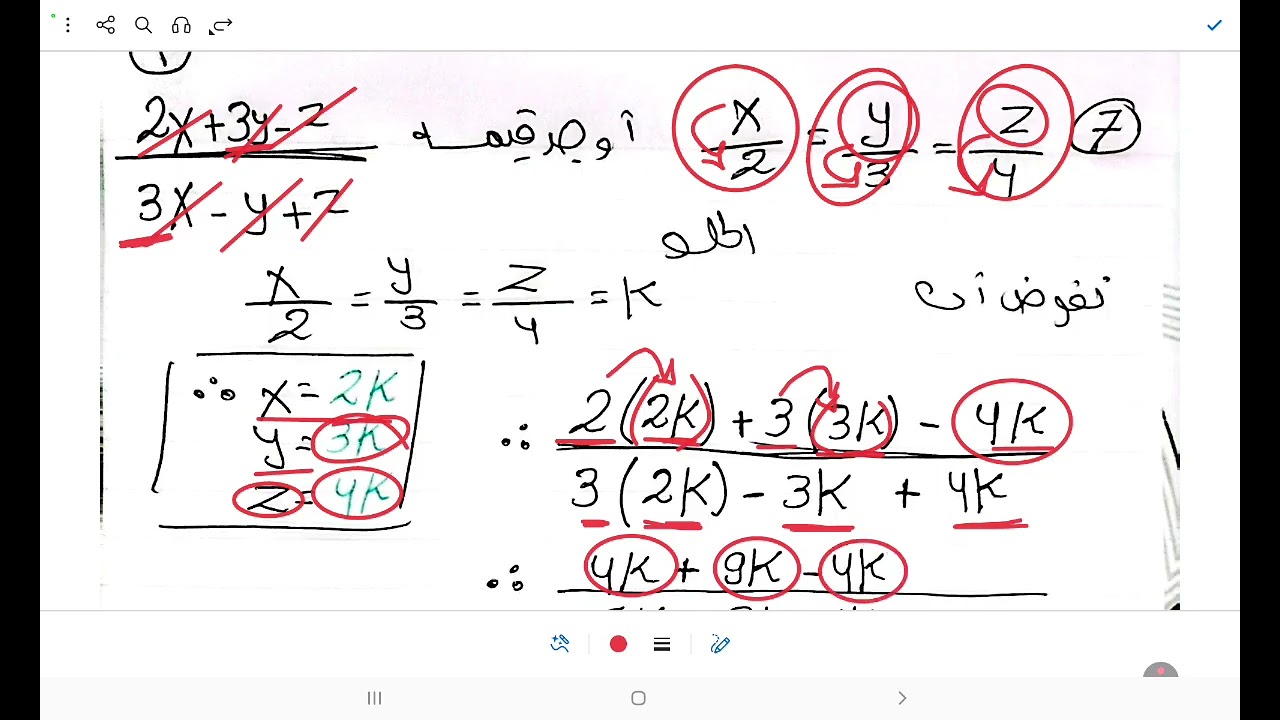 7 x/2 = y/3 = z/4 أوجد قيمة (2x+3y-z)/(3x-y+z)
الحل
نفرض أن
x/2 = y/3 = z/4 = K
∴ x = 2K
y = 3K
z = 4K
∴ (2(2K) + 3(3K) - 4K)/(3(2K) - 3K + 4K)
∴ 4K + 9K - 4K